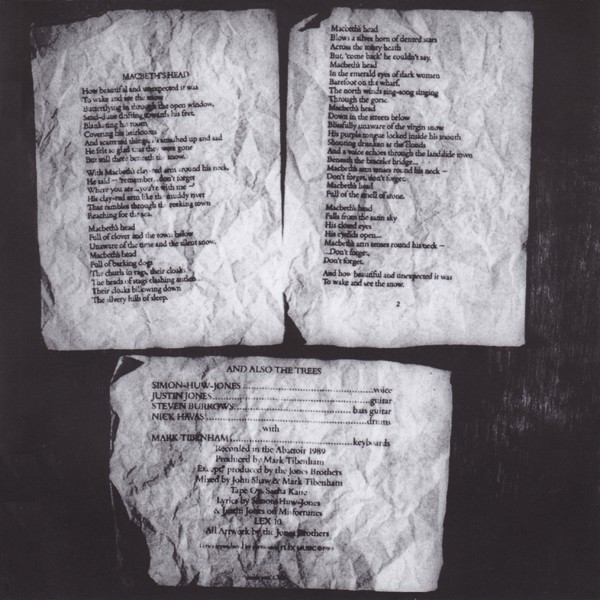 MACBETH'S HEAD
How beautiful and unexpected it was
To wake and see the snow
Butterflying in through the open window,
Sand-dune drifting towards his feet,
Blanketing his room
Covering his heirlooms
And scattered things, is smashed up and sad
He felt so glad that they were gone
But still there beneath the snow.
With Macbeth's clay-red arm around his neck,
He said — 'remember.. don't forget
Where you are ...you're with me —'
His clay-red arm like the muddy river
That rambles through the reeking town
Reaching for the sea.
Macbeth's head
Full of clover and the town below
Unaware of the time and the silent snow,
Macbeth's head
Full of barking dogs
The churls in rags, their cloaks
The heads of stags clashing antlers
Their cloaks billowing down
The silvery hills of sleep.
Macbeth's head
Blows a silver horn of dented stars
Across the misty heath
But, 'come back' he couldn't say.
Macbeth's head
In the emerald eyes of dark women
Barefoot on the wharf.
The north winds sing-song singing
Through the gorse.
Macbeth's head
Down in the streets below
Blissfully unaware of the virgin snow
His purple tongue locked inside his mouth
Shouting drunken at the clouds
And a voice echoes through the landslide town
Beneath the bracelet bridge...
Macbeth's arm tenses round his neck —
Don't forget, don't forget.
Macbeth's head
Full of the smell of stone.
Macbeth's head
Falls from the satin sky
His closed eyes
His eyelids open...
Macbeth's arm tenses round his neck —
...Don't forget,
Don't forget.
And how beautiful and unexpected it was
To wake and see the snow.
2
AND ALSO THE TREES
SIMON-HUW-JONES ....................voice
JUSTIN JONES....................guitar
STEVEN BURROWS....................bass guitar
NICK HAVAS....................drums
with
MARK TIBENHAM....................keyboards
Recorded in the Abattoir 1989
Produced by Mark Tibenham
Except produced by the Jones Brothers
Mixed by John Shaw & Mark Tibenham
Tape Op. Sasha Kane
Lyrics by Simon Huw-Jones
& Justin Jones on Misfortunes
LEX 10
All Artwork by the Jones Brothers